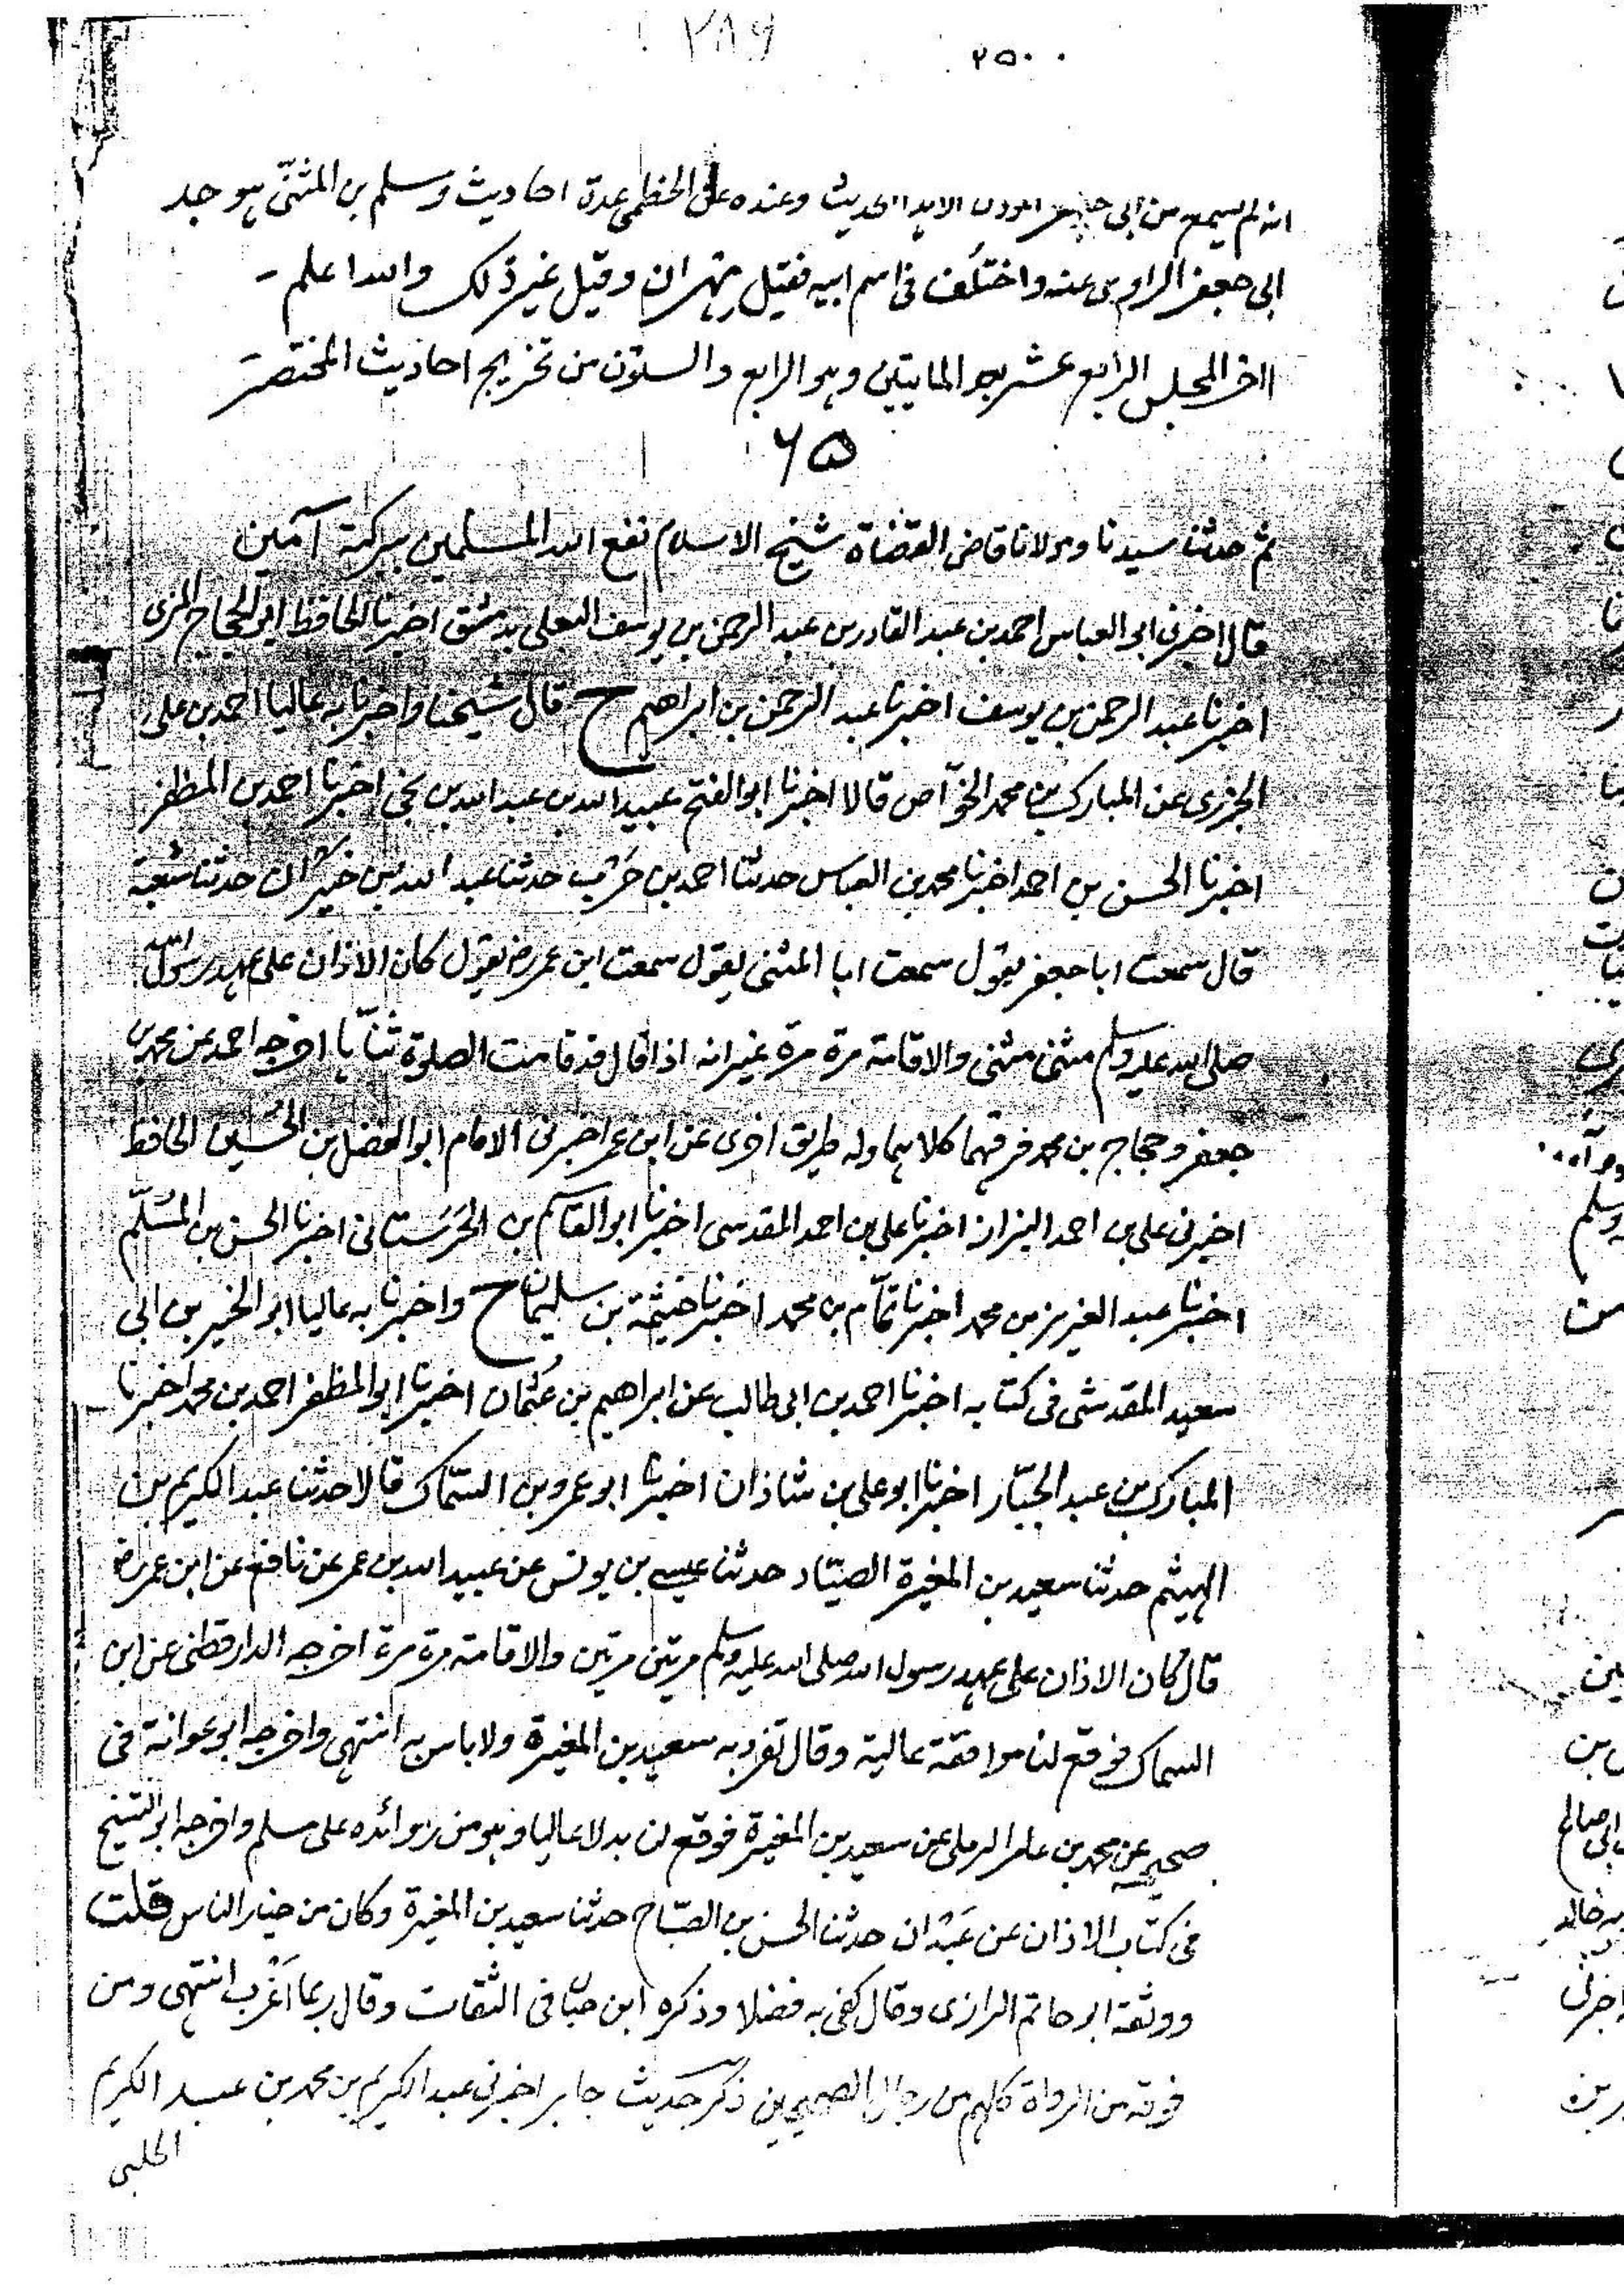 ٢٨٩ ٢٥٠٠
انه لم يسمع من ابى جعفر المؤذن الا هذا الحديث وعنده على الخطمى عدة احاديث ومسلم بن المثنّى هو جد
ابى جعفر الراوى عنه واختلف فى اسم ابيه فقيل مِهران وقيل غير ذلك والله اعلم -
اخر المجلس الرابع عشر بعد المايتين وهو الرابع والستون من تخريج احاديث المختصر
٦٥
ثم حدثنا سيدنا ومولانا قاضى القضاة شيخ الاسلام نفع الله المسلمين ببركته آمين
قال اخبرنى ابو العباس احمد بن عبد القادر بن عبد الرحمن بن يوسف البعلى بدمشق اخبرنا الحافظ ابو الحجاج المزى
اخبرنا عبد الرحمن بن يوسف اخبرنا عبد الرحمن بن ابراهيم ح قال شيخنا واخبرنا به عاليا احمد بن على
الجزرى عن المبارك بن محمد الخوّاص قالا اخبرنا ابو الفتح عبيد الله بن عبد الله بن نجى اخبرنا احمد بن المظفر
اخبرنا الحسن بن احمد اخبرنا محمد بن العباس حدثنا احمد بن حَرْب حدثنا عبد الله بن خَيْران حدثنا شعبة
قال سمعت ابا جعفر يقول سمعت ابا المثنى يقول سمعت ابن عمر رض يقول كان الاذان على عهد رسول الله
صلى الله عليه وسلم مثنى مثنى والاقامة مرة مرة غير انه اذا قال قد قامت الصلوة ثنّاها اخرجه احمد عن محمد بن
جعفر وحجاج بن محمد فرقهما كلاهما وله طريق اخرى عن ابن عمر اخبرنى الامام ابو الفضل بن الحُسين الحافظ
اخبرنى على بن احمد البزاز اخبرنا على بن احمد المقدسى اخبرنا ابو القاسم بن الحَرَستانى اخبرنا الحسن بن المُسَلّم
اخبرنا عبد العزيز بن محمد اخبرنا تمّام بن محمد اخبرنا خيثمة بن سليمان ح واخبرنا به عاليا ابو الخير بن ابى
سعيد المقدسى فى كتابه اخبرنا احمد بن ابى طالب عن ابراهيم بن عثمان اخبرنا ابو المظفر احمد بن محمد اخبرنا
المبارك بن عبد الجبّار اخبرنا ابو على بن شاذان اخبرنا ابو عمرو بن السّماك قالا حدثنا عبد الكريم بن
الهيثم حدثنا سعيد بن المغيرة الصيّاد حدثنا عيسى بن يونس عن عبيد الله بن عمر عن نافع عن ابن عمر رض
قال كان الاذان على عهد رسول الله صلى الله عليه وسلم مرتين مرتين والاقامة مرة مرة اخرجه الدارقطنى عن ابن
السماك فوقع لنا موافقة عالية وقال تفرد به سعيد بن المغيرة ولا باس به انتهى واخرجه ابو عوانة فى
صحيحه عن محمد بن عامر الرملى عن سعيد بن المغيرة فوقع لنا بدلا عاليا وهو من زوائده على مسلم واخرجه ابو الشيخ
فى كتاب الاذان عن عَبْدان حدثنا الحسن بن الصبّاح حدثنا سعيد بن المغيرة وكان من خيار الناس قلت
ووثقه ابو حاتم الرازى وقال كفى به فضلا وذكره ابن حبّان فى الثقات وقال ربما اَغْرب انتهى ومن
فوقه من الرواة كلهم من رجال الصحيحين ذكر حديث جابر اخبرنى عبد الكريم بن محمد بن عبد الكريم
الحلبى